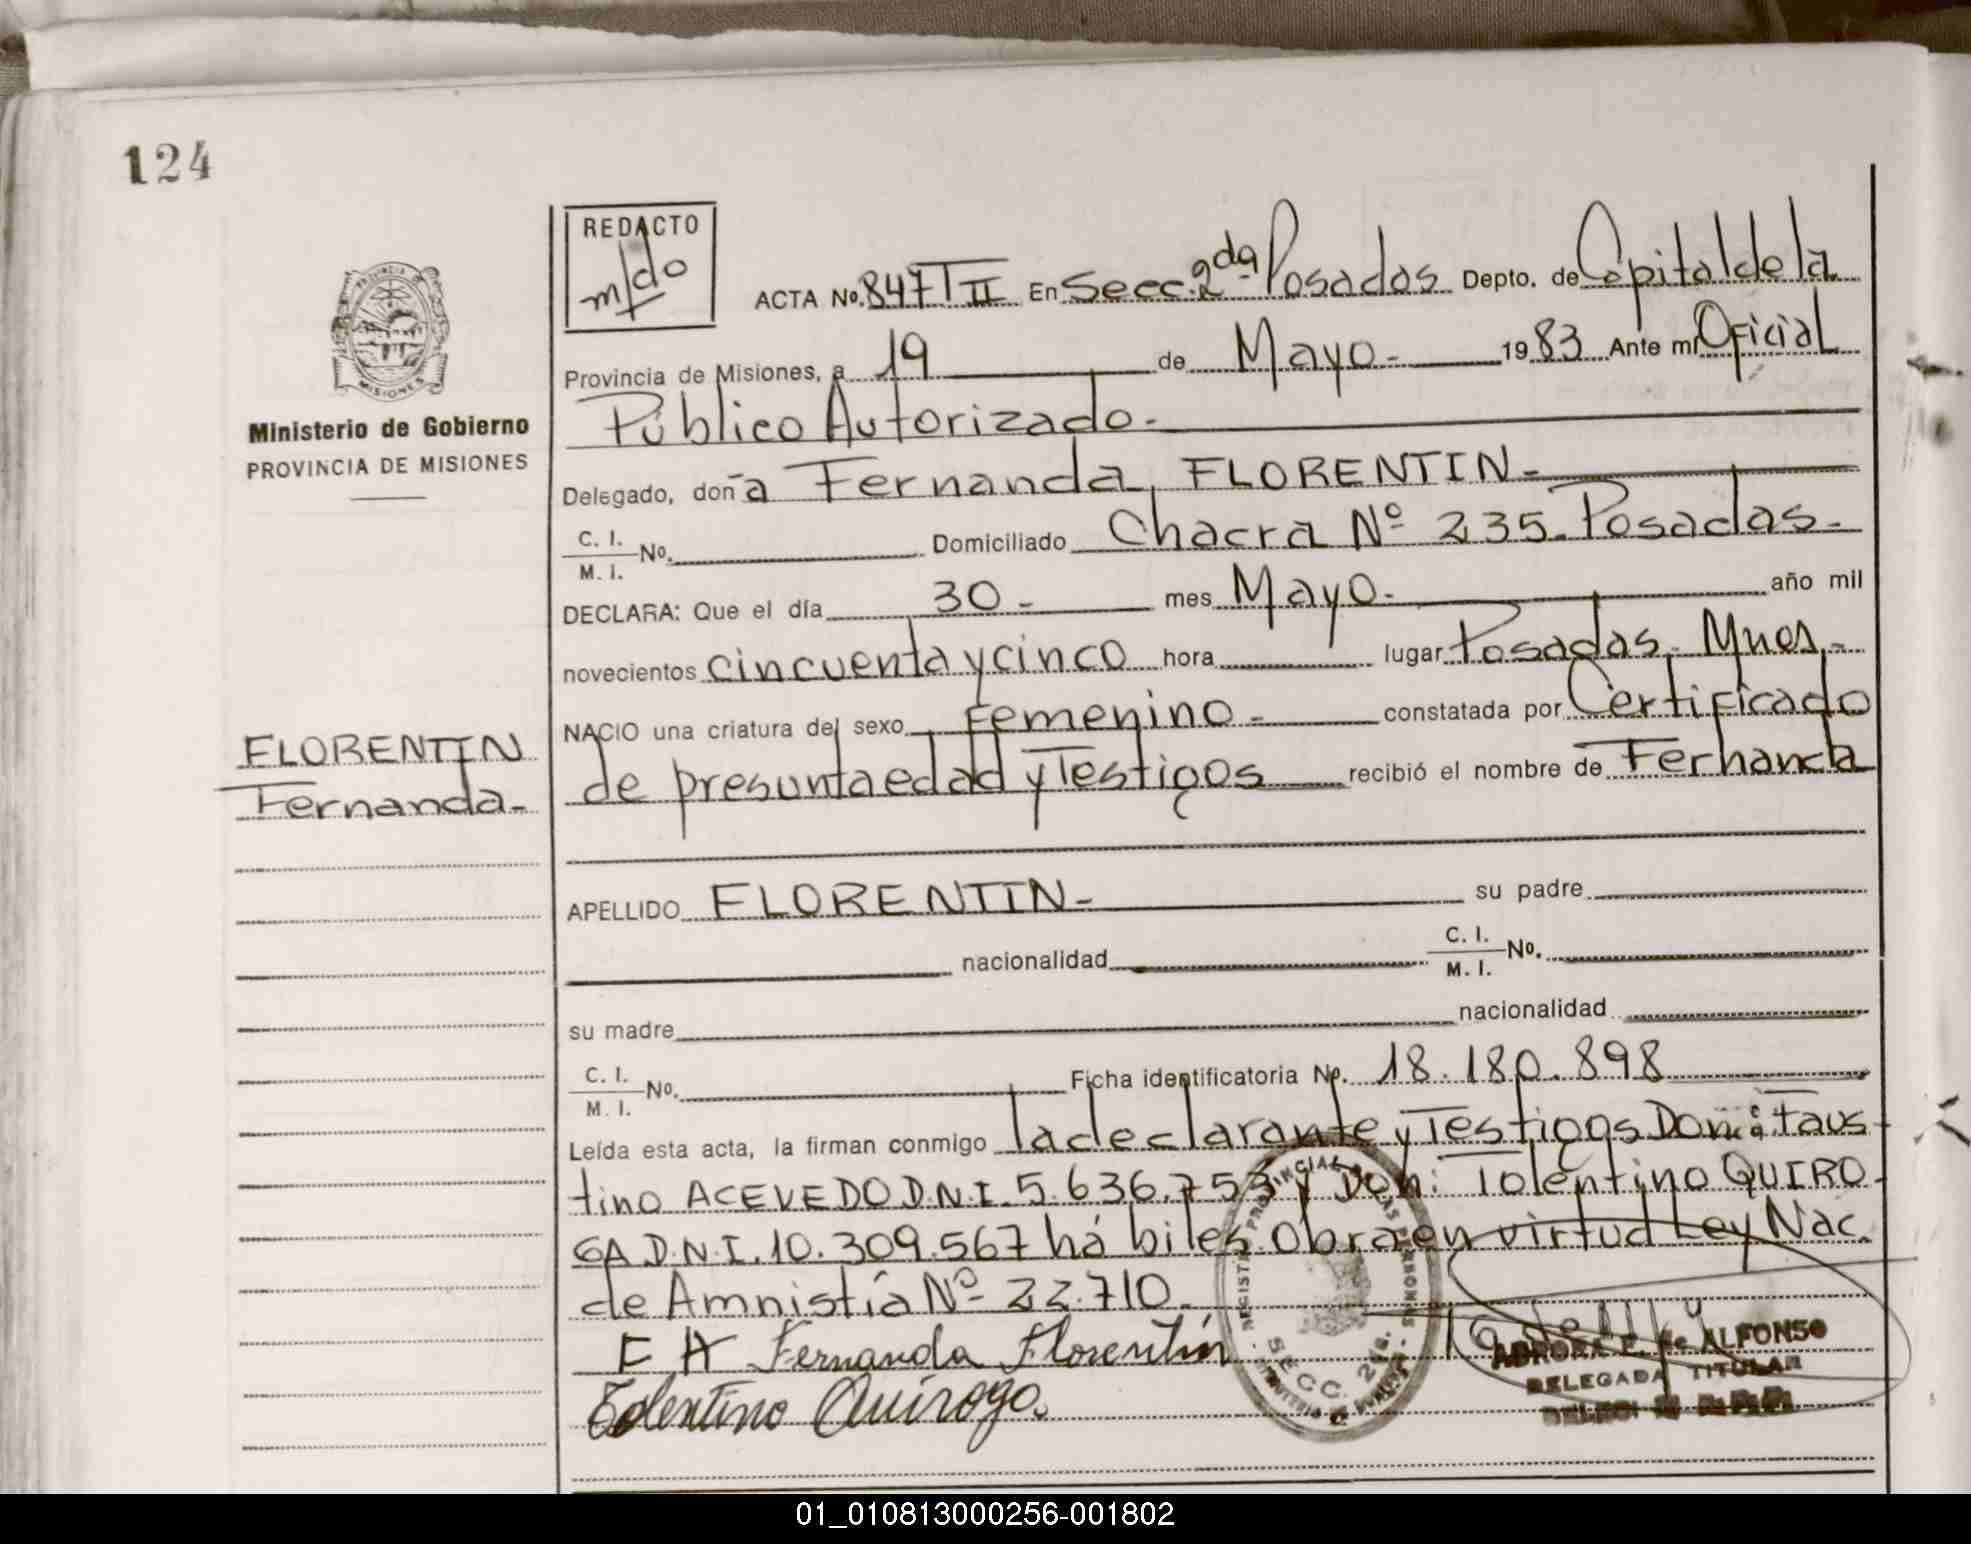 124
REDACTO
m/do
ACTA No. 847 T II En Secc. 2da Posadas Depto. de Capital de la
Provincia de Misiones, a 19 de Mayo.- 1983 Ante mi Oficial
Público Autorizado.-
Ministerio de Gobierno
PROVINCIA DE MISIONES
Delegado, don a Fernanda, FLORENTIN.-
C. I.
M. I. No. Domiciliado Chacra Nº 235. Posadas.-
DECLARA: Que el día 30.- mes Mayo.- año mil
novecientos cincuenta y cinco hora lugar Posadas, Mnes.-
NACIO una criatura del sexo femenino.- constatada por Certificado
de presunta edad y Testigos recibió el nombre de Fernanda
FLORENTIN
Fernanda.-
APELLIDO FLORENTIN.- su padre
nacionalidad C. I.
M. I. No.
su madre nacionalidad
C. I.
M. I. No. Ficha identificatoria No. 18.180.898
Leída esta acta, la firman conmigo la declarante y Testigos Don: Faus-
tino ACEVEDO D.N.I. 5.636.753 y Don: Tolentino QUIRO-
GA D.N.I. 10.309.567 hábiles. Obra en virtud Ley Nac.
de Amnistía Nº 22.710.
F A Fernanda Florentín
Tolentino Quiroga.
SECC. 2da.
de ALFONSO
DELEGADA TITULAR
01_010813000256-001802